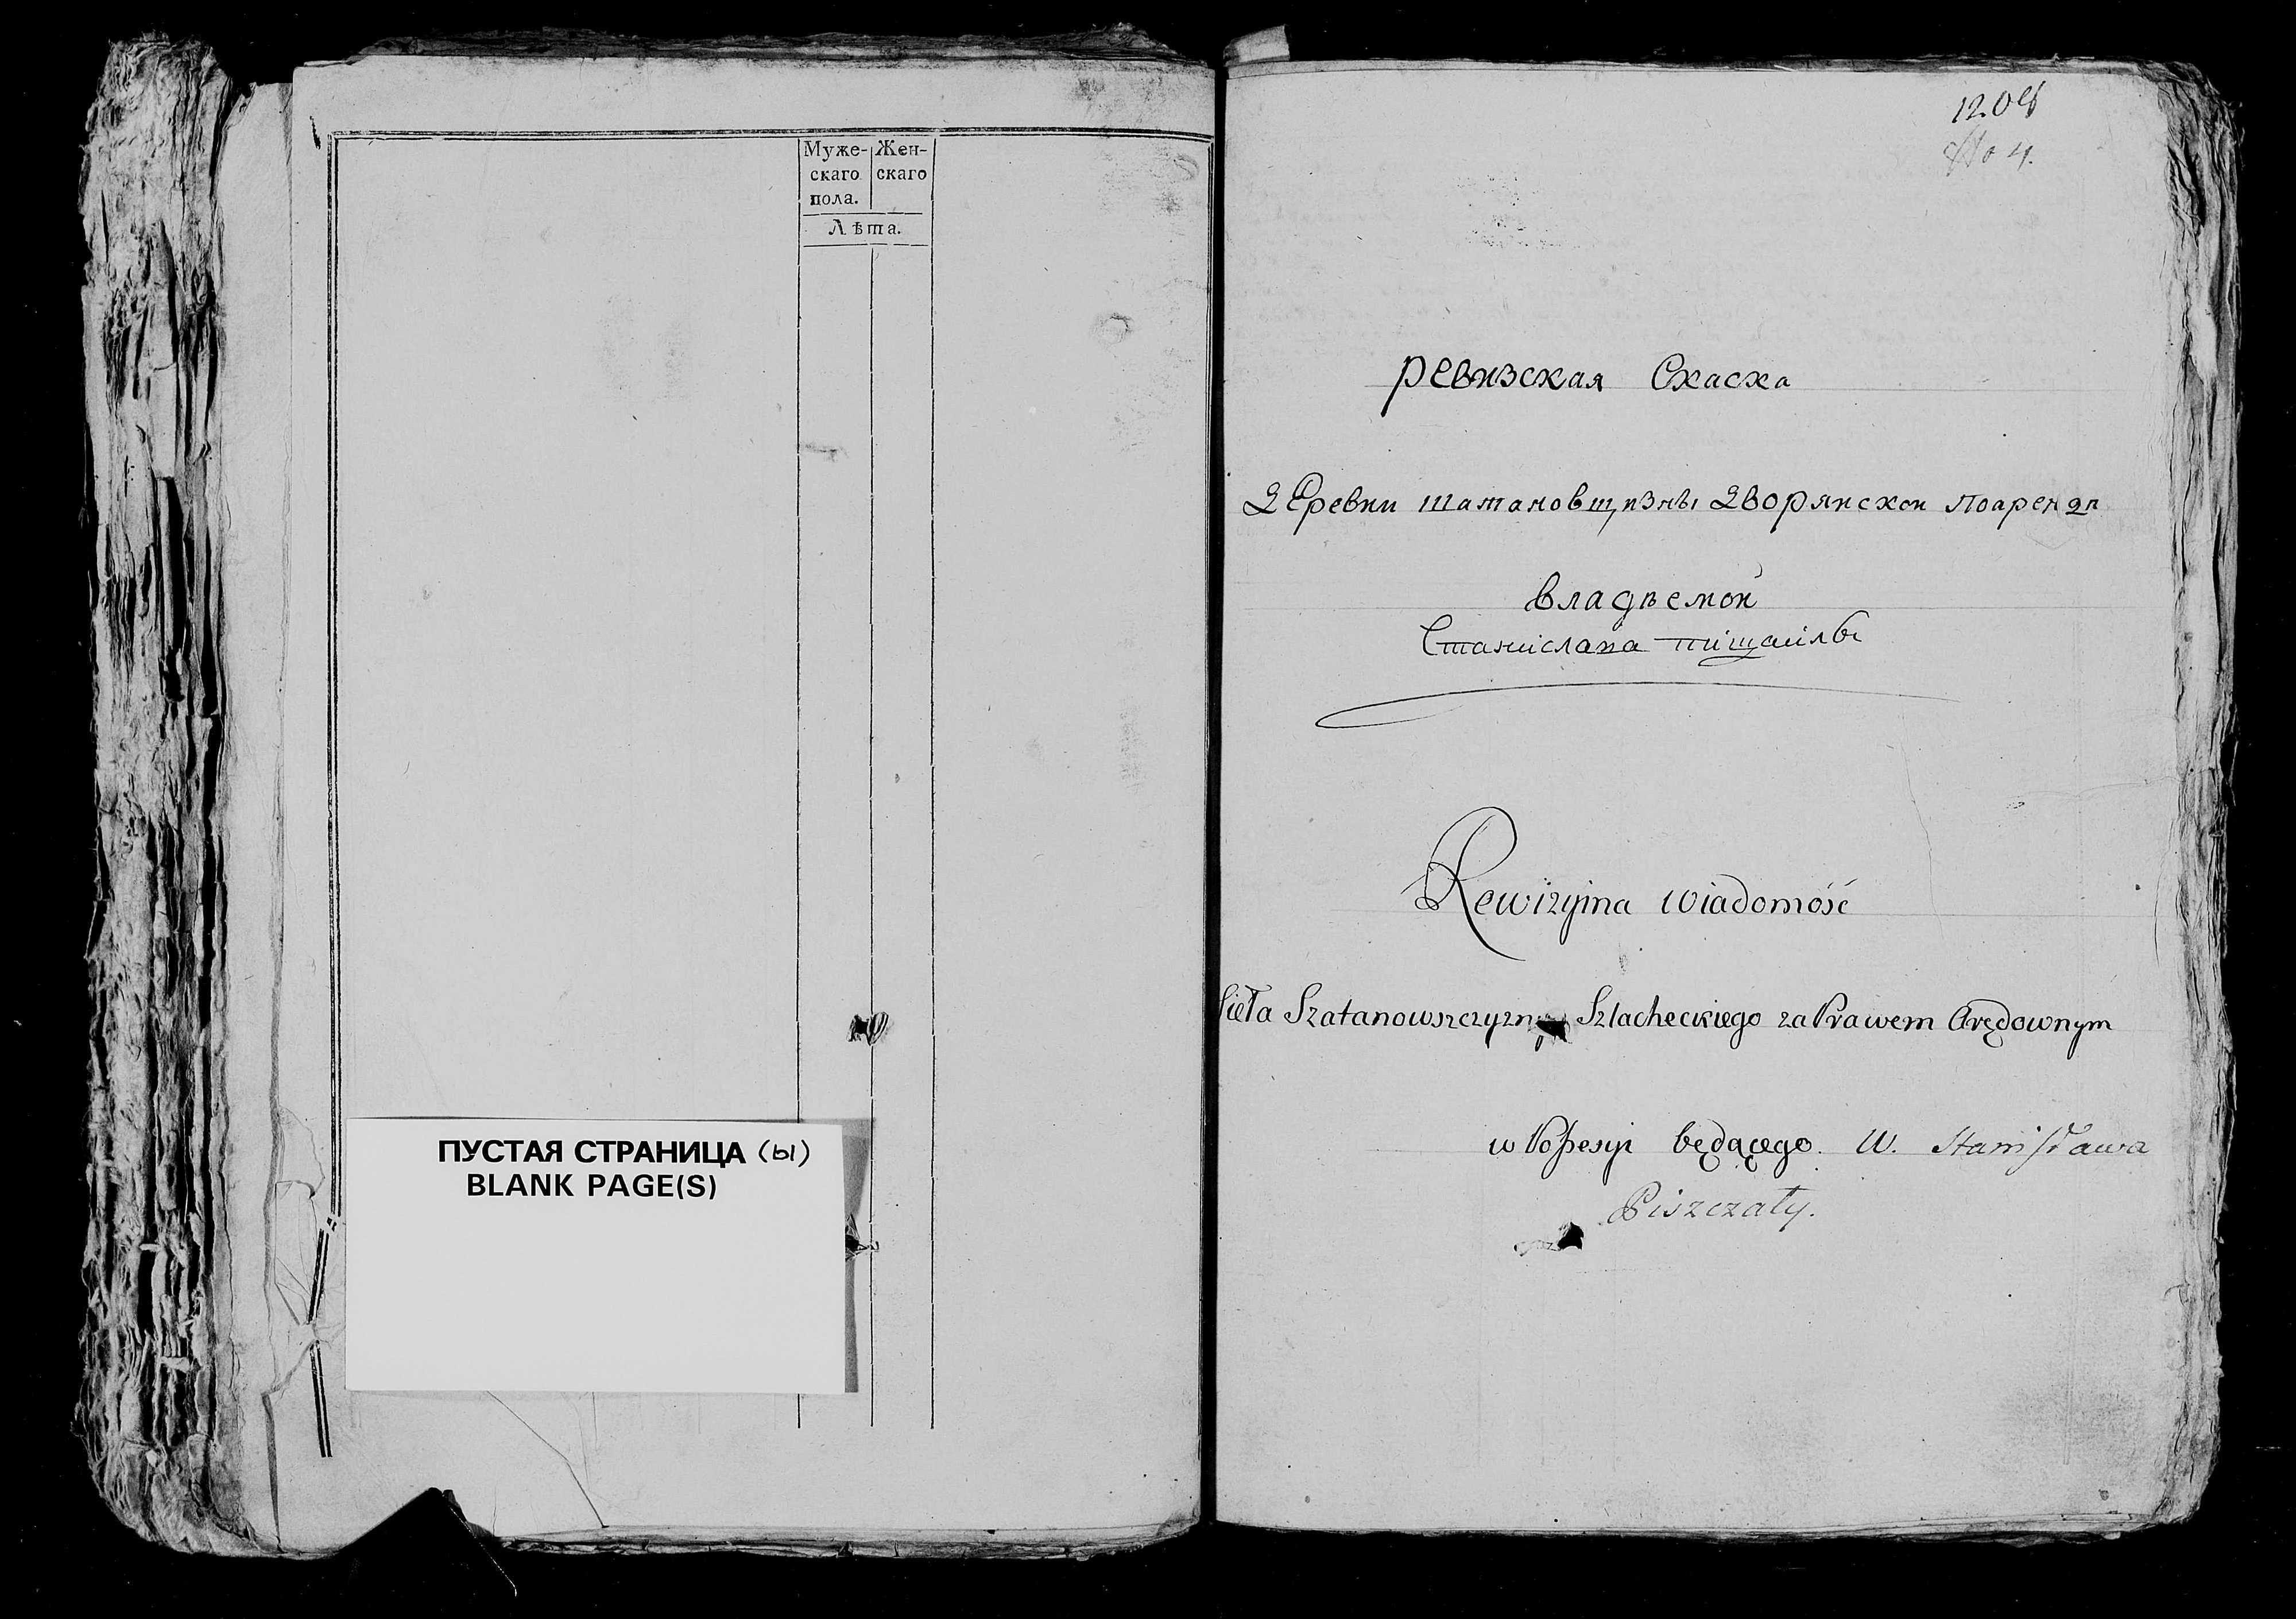 Муже-
скаго
пола.
Жен-
скаго
Лѣта.
ПУСТАЯ СТРАНИЦА (ы)
BLANK PAGE(S)
№ 4.
Ревизская Скаска
Деревни Шатановщизны Дворянской по аренди
владѣемой
Станіслава
Rewizyina wiadomość
Sieła Szatanowszczyzny Szlacheckiego za Prawem Arędownym
w Possesyi będącego. W. Stanisława
Piszczały.